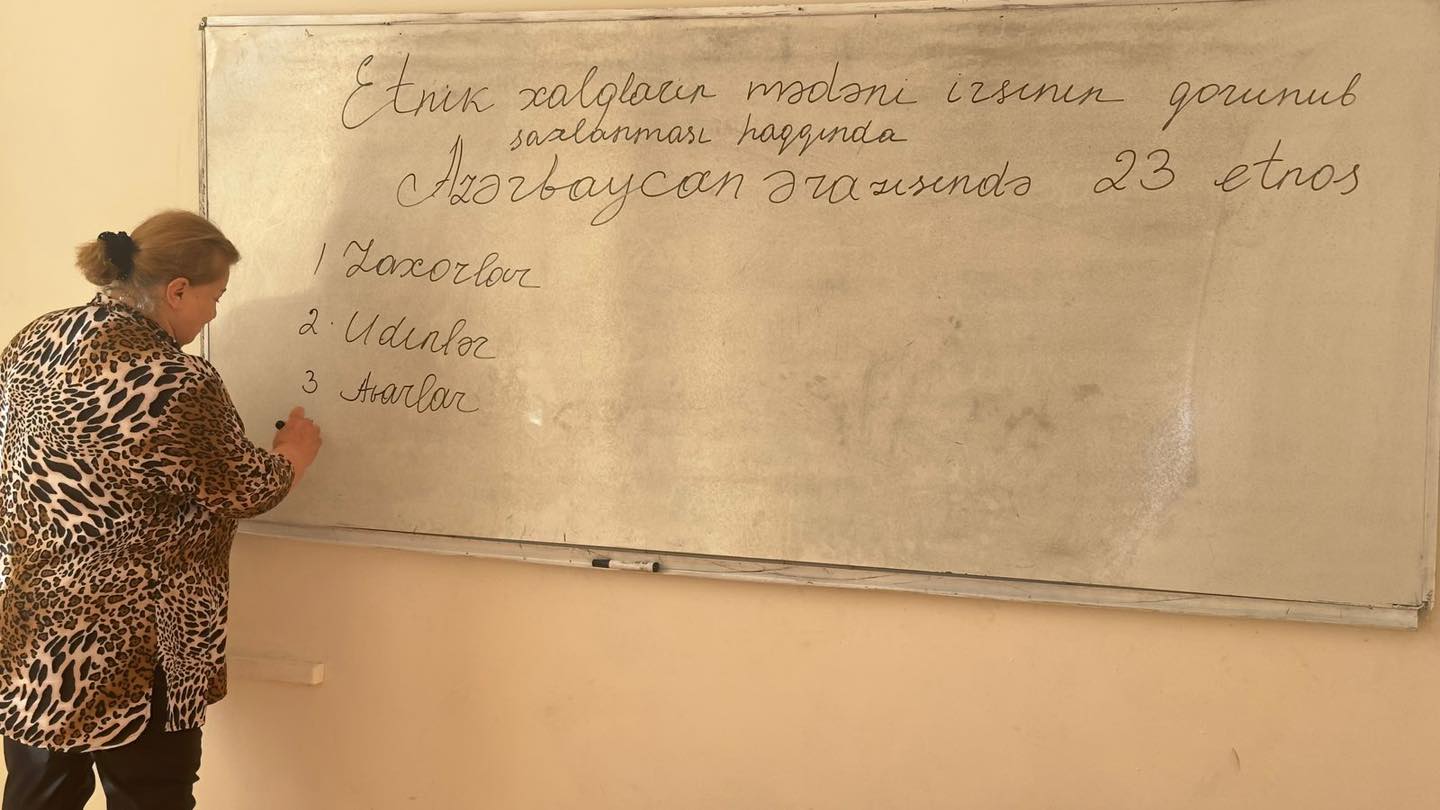 Etnik xalqların mədəni irsının qorunub
saxlanması haqqında
Azərbaycan ərazısında 23 etnos
1 Zaxorlar
2. Udınlər
3 Avarlar